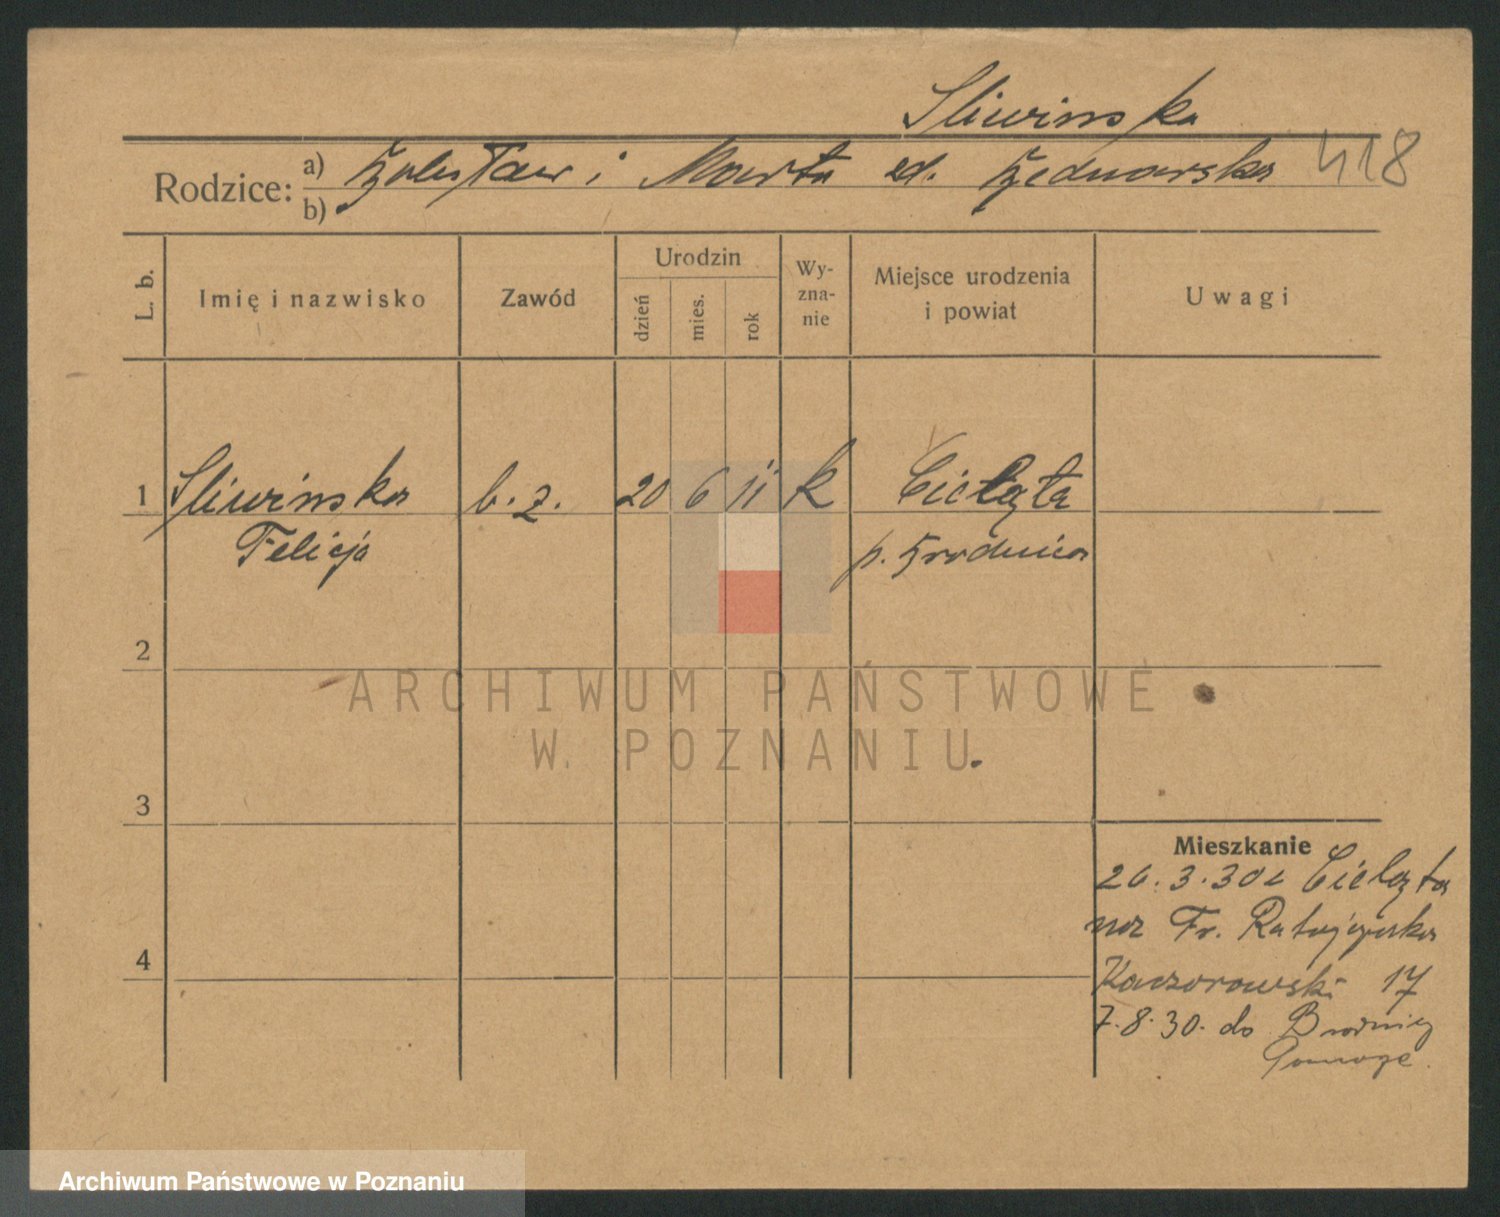 Śliwińska
418
Rodzice: a) Bolesław i Marta zd. Bednarska
b)
L. b. Imię i nazwisko Zawód Urodzin dzień mies. rok Wyzna-nie Miejsce urodzenia i powiat Uwagi
1 Śliwińska b. z. 20 6 11 k Cielęta
Felicja p. Brodnica
2
ARCHIWUM PAŃSTWOWE
W POZNANIU
3
Mieszkanie
26.3.30 z Cielęta
na Fr. Ratajczaka
4
Kaczorowski 17
7.8.30. do Brodnicy
Pomorze.
Archiwum Państwowe w Poznaniu